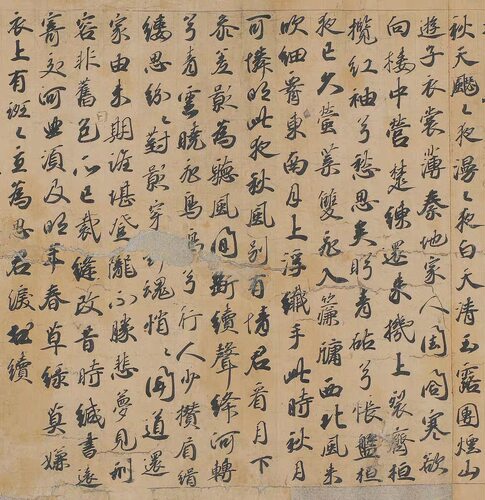 秋天飋〻夜漫〻夜白天清玉露團燕山
遊子衣裳薄秦地家人閨閤寒欲
向樓中営楚練還来機上裂齊桓
攬紅袖兮愁思矣眄青砧兮悵盤桓
夜已久螢葉雙飛入簾牖西北風来
吹細東南月上浮纖手此時秋月
可憐明此夜秋風別有情君看月下
參差影為聽風間斷續聲絳河轉
兮青雲曉飛鳥鳴兮行人少攢眉緝
縷思紛〻對影穿魂悄〻聞道還
家由未期誰堪登隴不勝悲夢見形
容非舊色所已裁縫改昔時緘書遠
寄交河曲須及明年春草綠莫嫌
衣上有斑〻立為思君淚相續